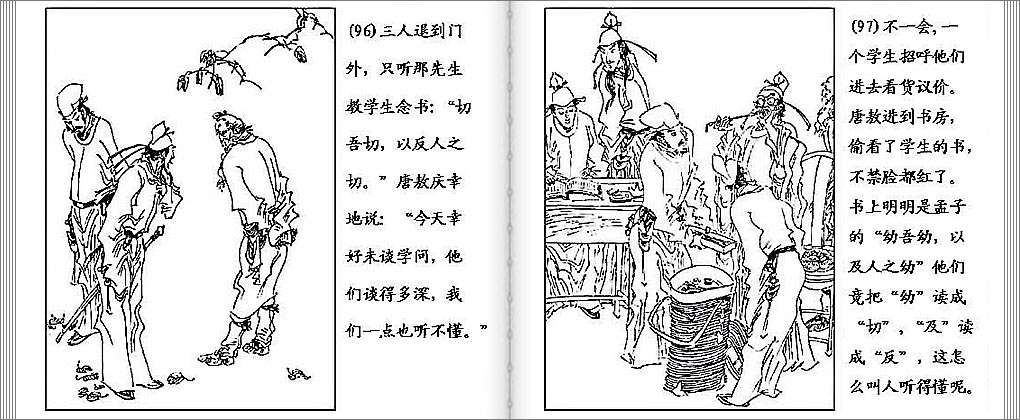 (96)三人退到门
外，只听那先生
教学生念书：“切
吾切，以反人之
切。”唐敖庆幸
地说：“今天幸
好未谈学问，他
们谈得多深，我
们一点也听不懂。”
(97)不一会，一
个学生招呼他们
进去看货议价。
唐敖进到书房，
偷看了学生的书，
不禁脸都红了。
书上明明是孟子
的“幼吾幼，以
及人之幼”他们
竟把“幼”读成
“切”，“及”读
成“反”，这怎
么叫人听得懂呢。